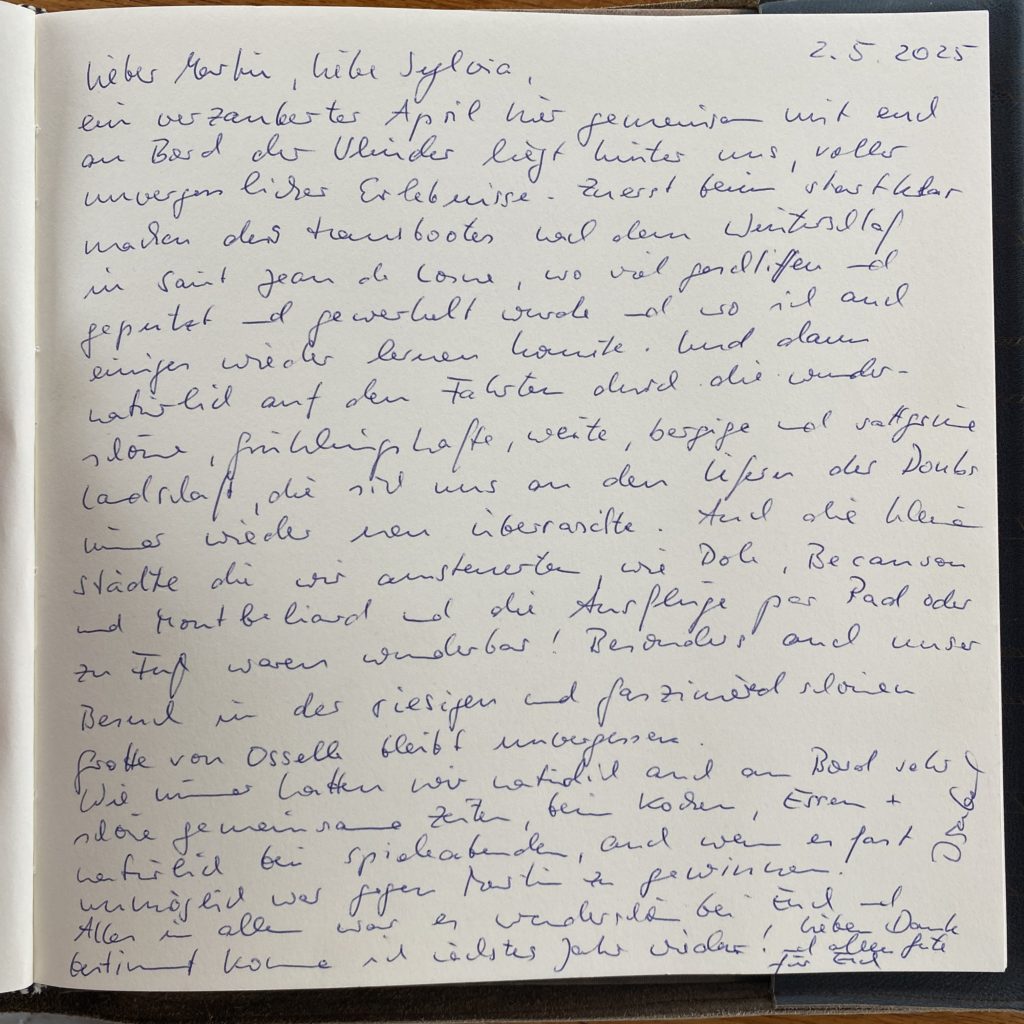 2.5.2025
Lieber Martin, liebe Sylvia,
ein verzauberter April hier gemeinsam mit euch
an Bord der Vlinder liegt hinter uns, voller
unvergesslicher Erlebnisse. Zuerst beim startklar
machen des Hausbootes nach dem Winterschlaf
in Saint Jean de Losne, wo viel geschliffen und
geputzt und gewerkelt wurde und wo ich auch
einiges wieder lernen konnte. Und dann
natürlich auf den Fahrten durch die wunder-
schöne, frühlingshafte, weite, bergige und sattgrüne
Landschaft, die sich uns an den Ufern des Doubs
immer wieder neu überraschte. Auch die kleine
Städte die wir ansteuerten, wie Dole, Becancon
und Montbeliard und die Ausflüge per Rad oder
zu Fuß waren wunderbar! Besonders auch unser
Besuch in der riesigen und faszinierend schönen
Grotte von Osselle bleibt unvergessen.
Wie immer hatten wir natürlich auch an Bord sehr
schöne gemeinsame Zeiten, beim Kochen, Essen +
natürlich bei Spieleabenden, auch wenn es fast
unmöglich war gegen Martin zu gewinnen.
Alles in allem war es wunderschön bei Euch und
bestimmt komme ich nächstes Jahr wieder! Lieben Dank
und alles Gute
für Euch